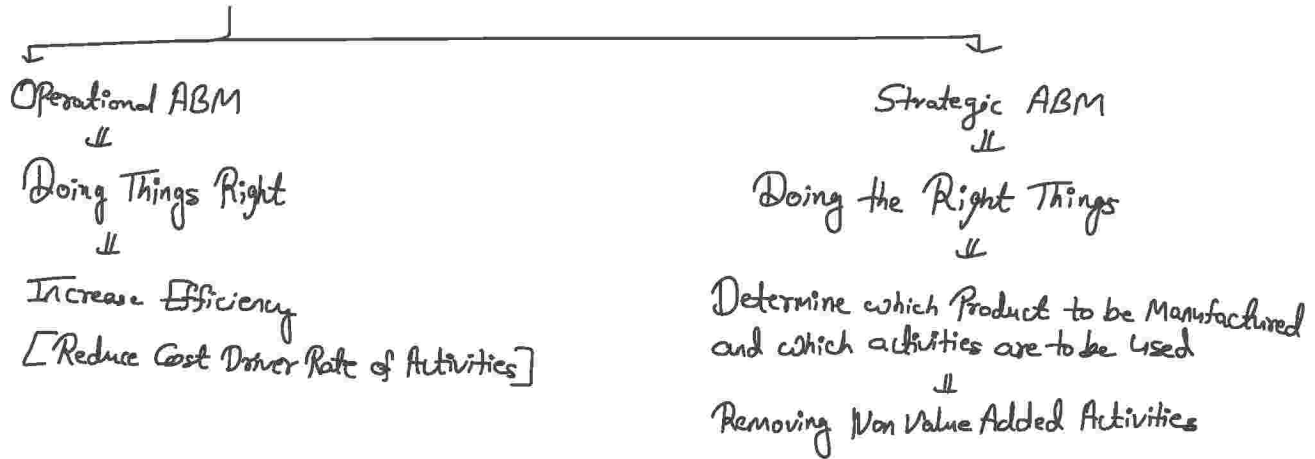 Operational ABM
Doing Things Right
Increase Efficiency
[Reduce Cost Driver Rate of Activities]
Strategic ABM
Doing the Right Things
Determine which Product to be Manufactured
and which activities are to be used
Removing Non Value Added Activities